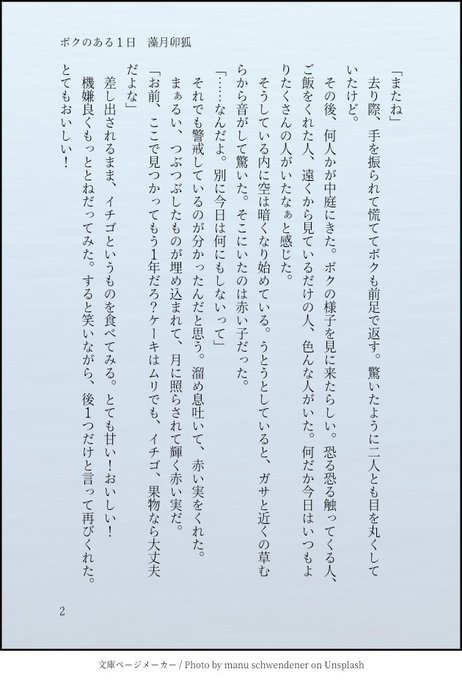 ボクのある１日　藻月卯狐
「またね」
　去り際、手を振られて慌ててボクも前足で返す。驚いたように二人とも目を丸くして
いたけど。
　その後、何人かが中庭にきた。ボクの様子を見に来たらしい。恐る恐る触ってくる人、
ご飯をくれた人、遠くから見ているだけの人、色んな人がいた。何だか今日はいつもよ
りたくさんの人がいたなぁと感じた。
　そうしている内に空は暗くなり始めている。うとうとしていると、ガサと近くの草む
らから音がして驚いた。そこにいたのは赤い子だった。
「……なんだよ。別に今日は何にもしないって」
　それでも警戒しているのが分かったんだと思う。溜め息吐いて、赤い実をくれた。
　まぁるい、つぶつぶしたものが埋め込まれて、月に照らされて輝く赤い実だ。
「お前、ここで見つかってもう１年だろ？ケーキはムリでも、イチゴ、果物なら大丈夫
だよな」
　差し出されるまま、イチゴというものを食べてみる。とても甘い！おいしい！
　機嫌良くもっととねだってみた。すると笑いながら、後１つだけと言って再びくれた。
とてもおいしい！
2
文庫ページメーカー / Photo by manu schwendener on Unsplash